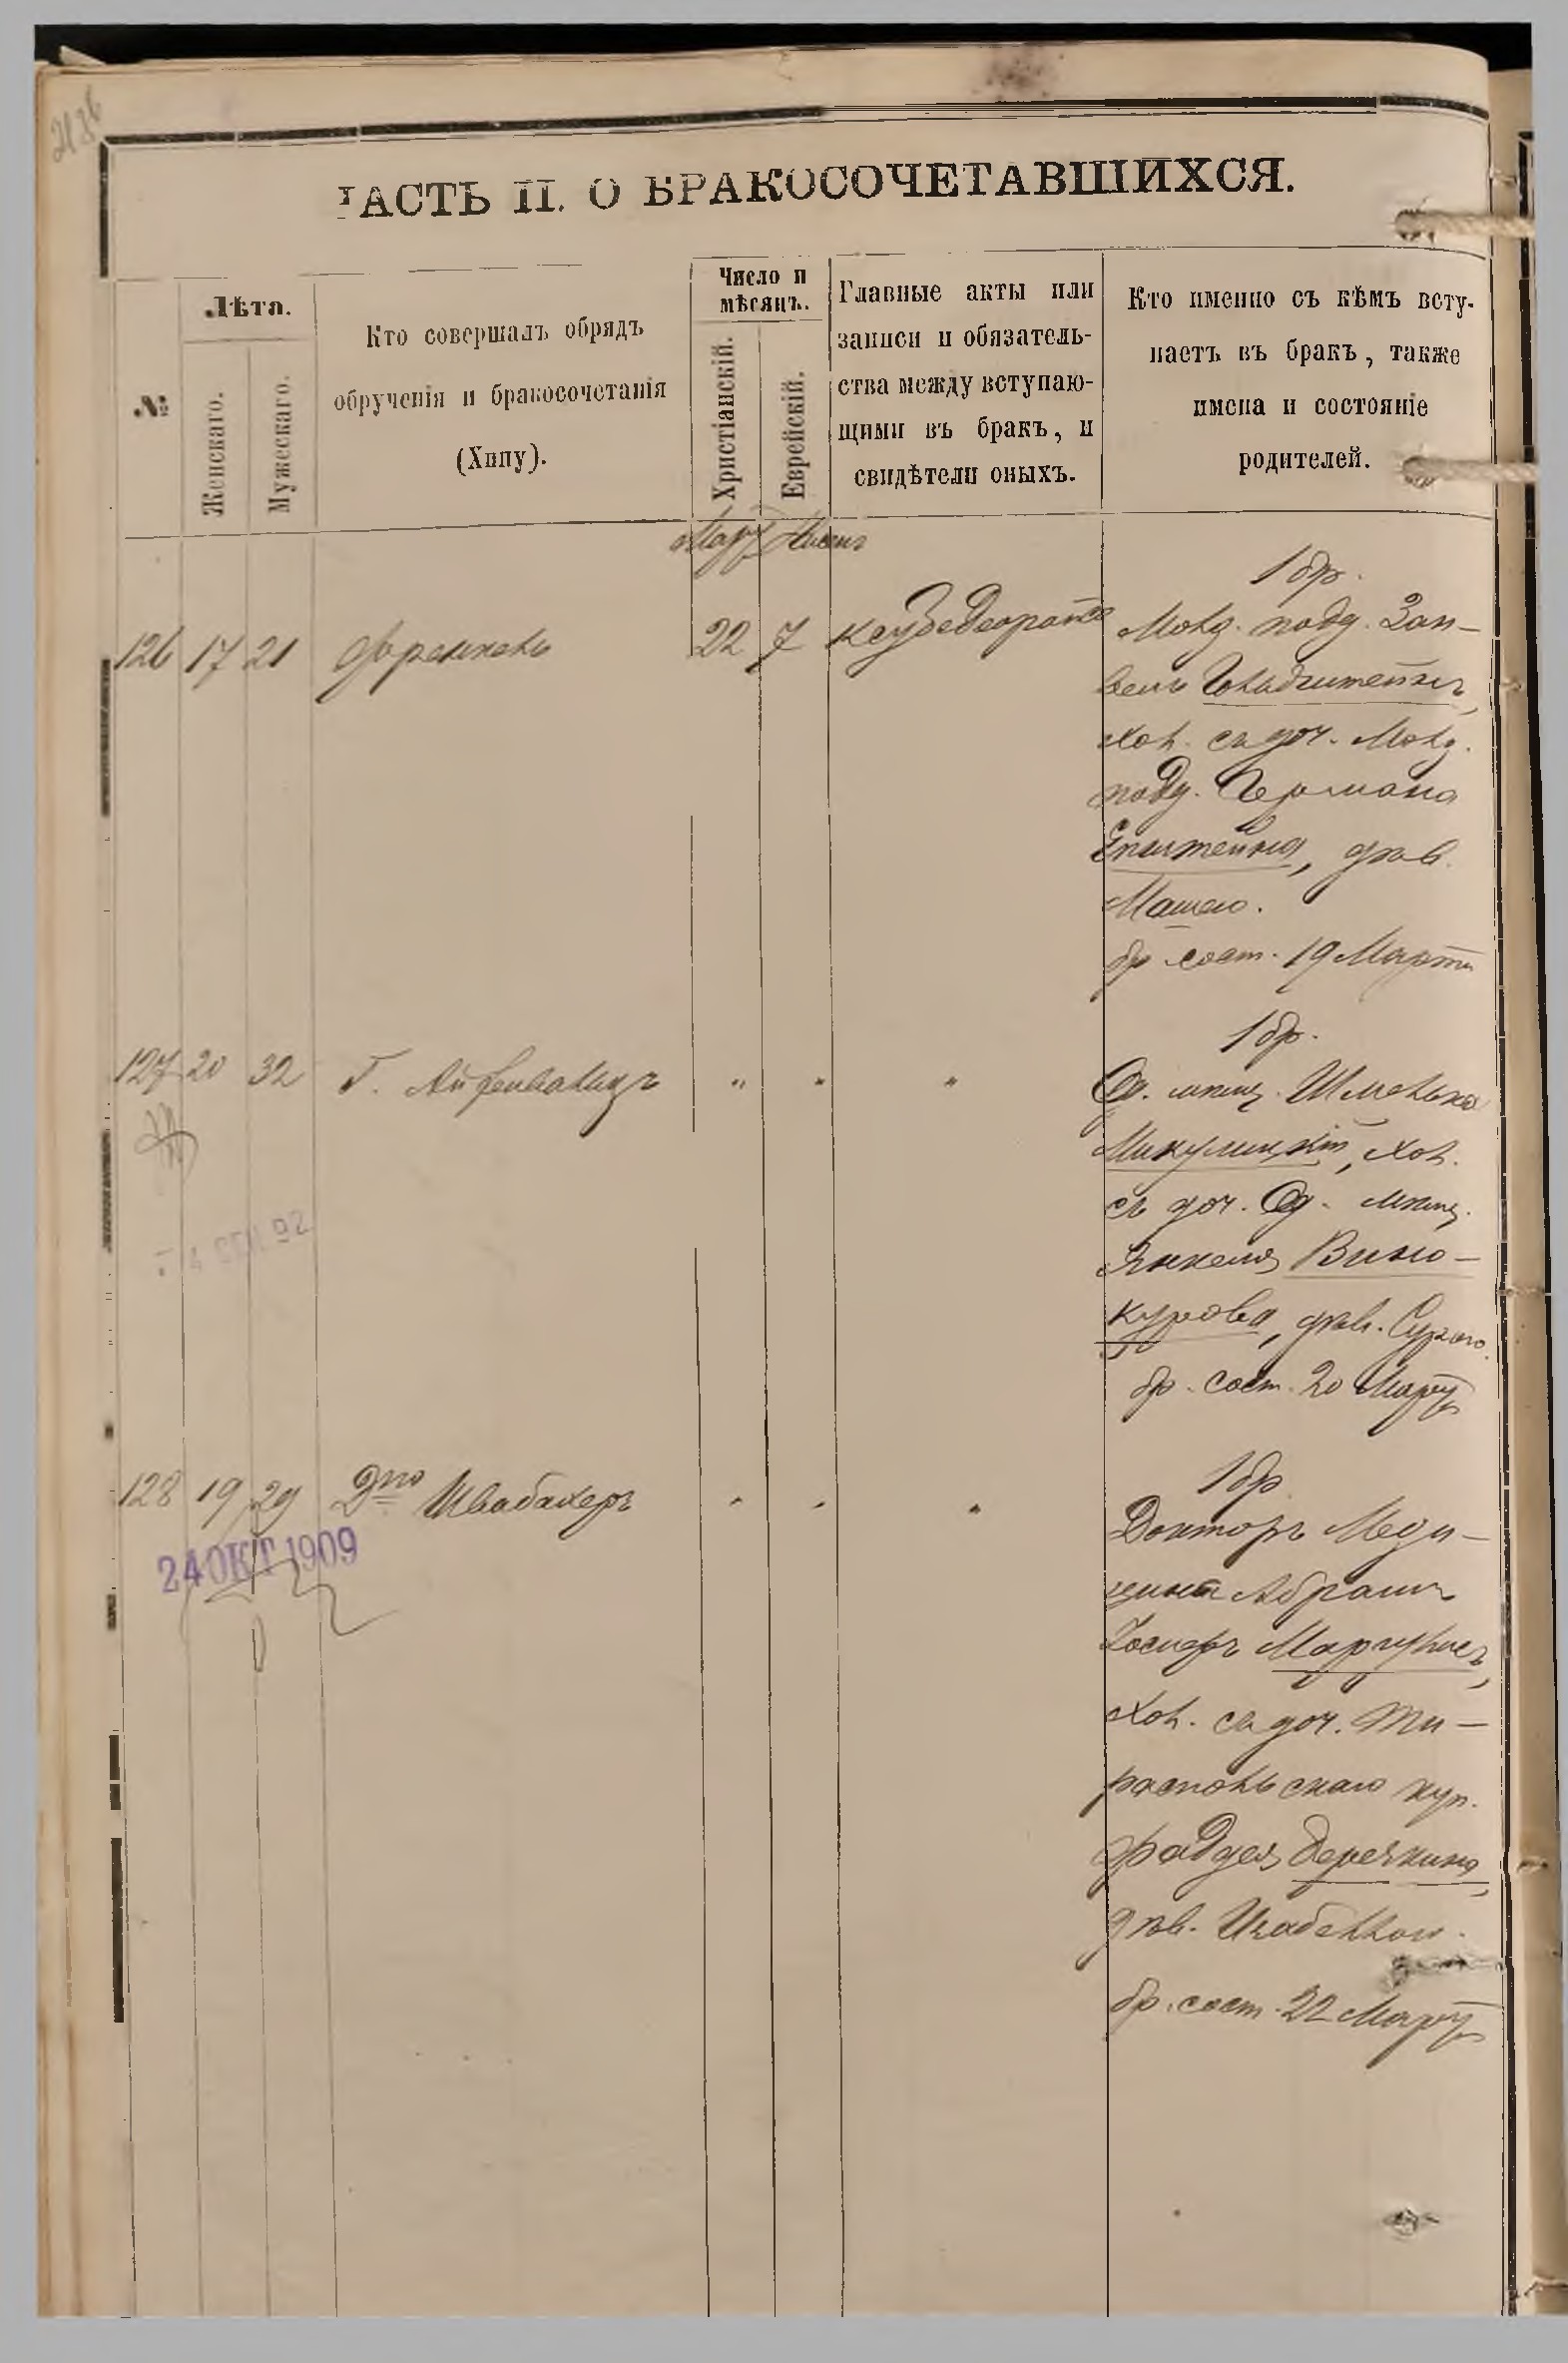 ЧАСТЬ II. О БРАКОСОЧЕТАВШИХСЯ.
№
Лѣта.
Женскаго.
Мужескаго.
Кто совершалъ обрядъ
обрученія и бракосочетанія
(Хипу).
Число и
мѣсяцъ.
Христіанскій.
Еврейскій.
Главные акты или
записи и обязатель-
ства между вступаю-
щими въ бракъ, и
свидѣтели оныхъ.
Кто именно съ кѣмъ всту-
паетъ въ бракъ, также
имена и состояніе
родителей.
Мартъ Нисанъ
126 17 21 Френкель 22 7
1 бр.
Молд. подд. Зан-
вель Гольдштейнъ,
хол. съ доч. Молд.
подд. Германа
Эпштейна, дѣв.
Машею.
бр. сост. 19 Марта
127 20 32 Г. " " "
1 бр.
Од. мѣщ. Шмелька
Микулицкій, хол.
съ доч. Од. мѣщ.
Янкеля Вино-
курова, дѣв. Сурою.
бр. сост. 20 Март
СЕН. 92
128 19 29 Д-ръ Швабахеръ " " "
24 ОКТ 1909
1 бр
Докторъ Меди-
цины Абрамъ
Іосифъ Маргулисъ,
хол. съ доч. Ти-
распольскаго куп.
дѣв. Изабеллою.
бр. сост. 22 Март